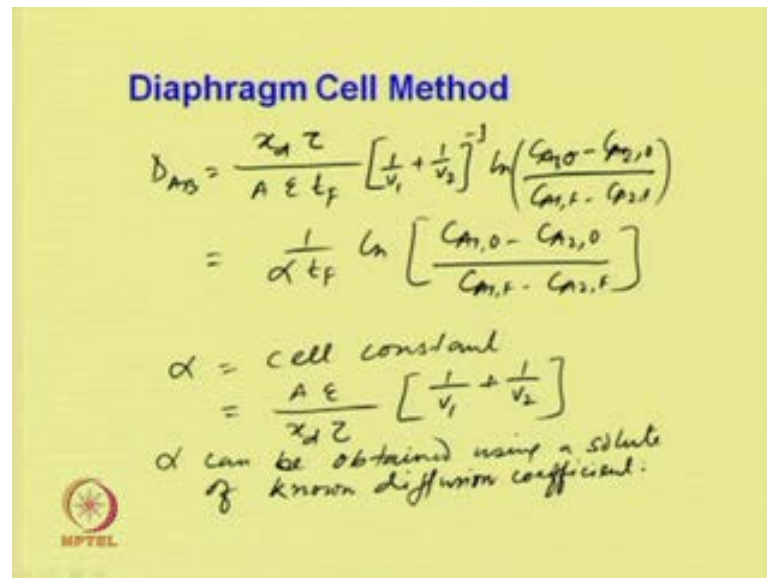 Diaphragm Cell Method
D_AB = x_d τ / A ε t_F [1/V_1 + 1/V_2]^-1 ln(C_A1,0 - C_A2,0 / C_A1,F - C_A2,F)
= 1 / α t_F ln [C_A1,0 - C_A2,0 / C_A1,F - C_A2,F]
α = cell constant
= A ε / x_d τ [1/V_1 + 1/V_2]
α can be obtained using a solute
of known diffusion coefficient.
NPTEL